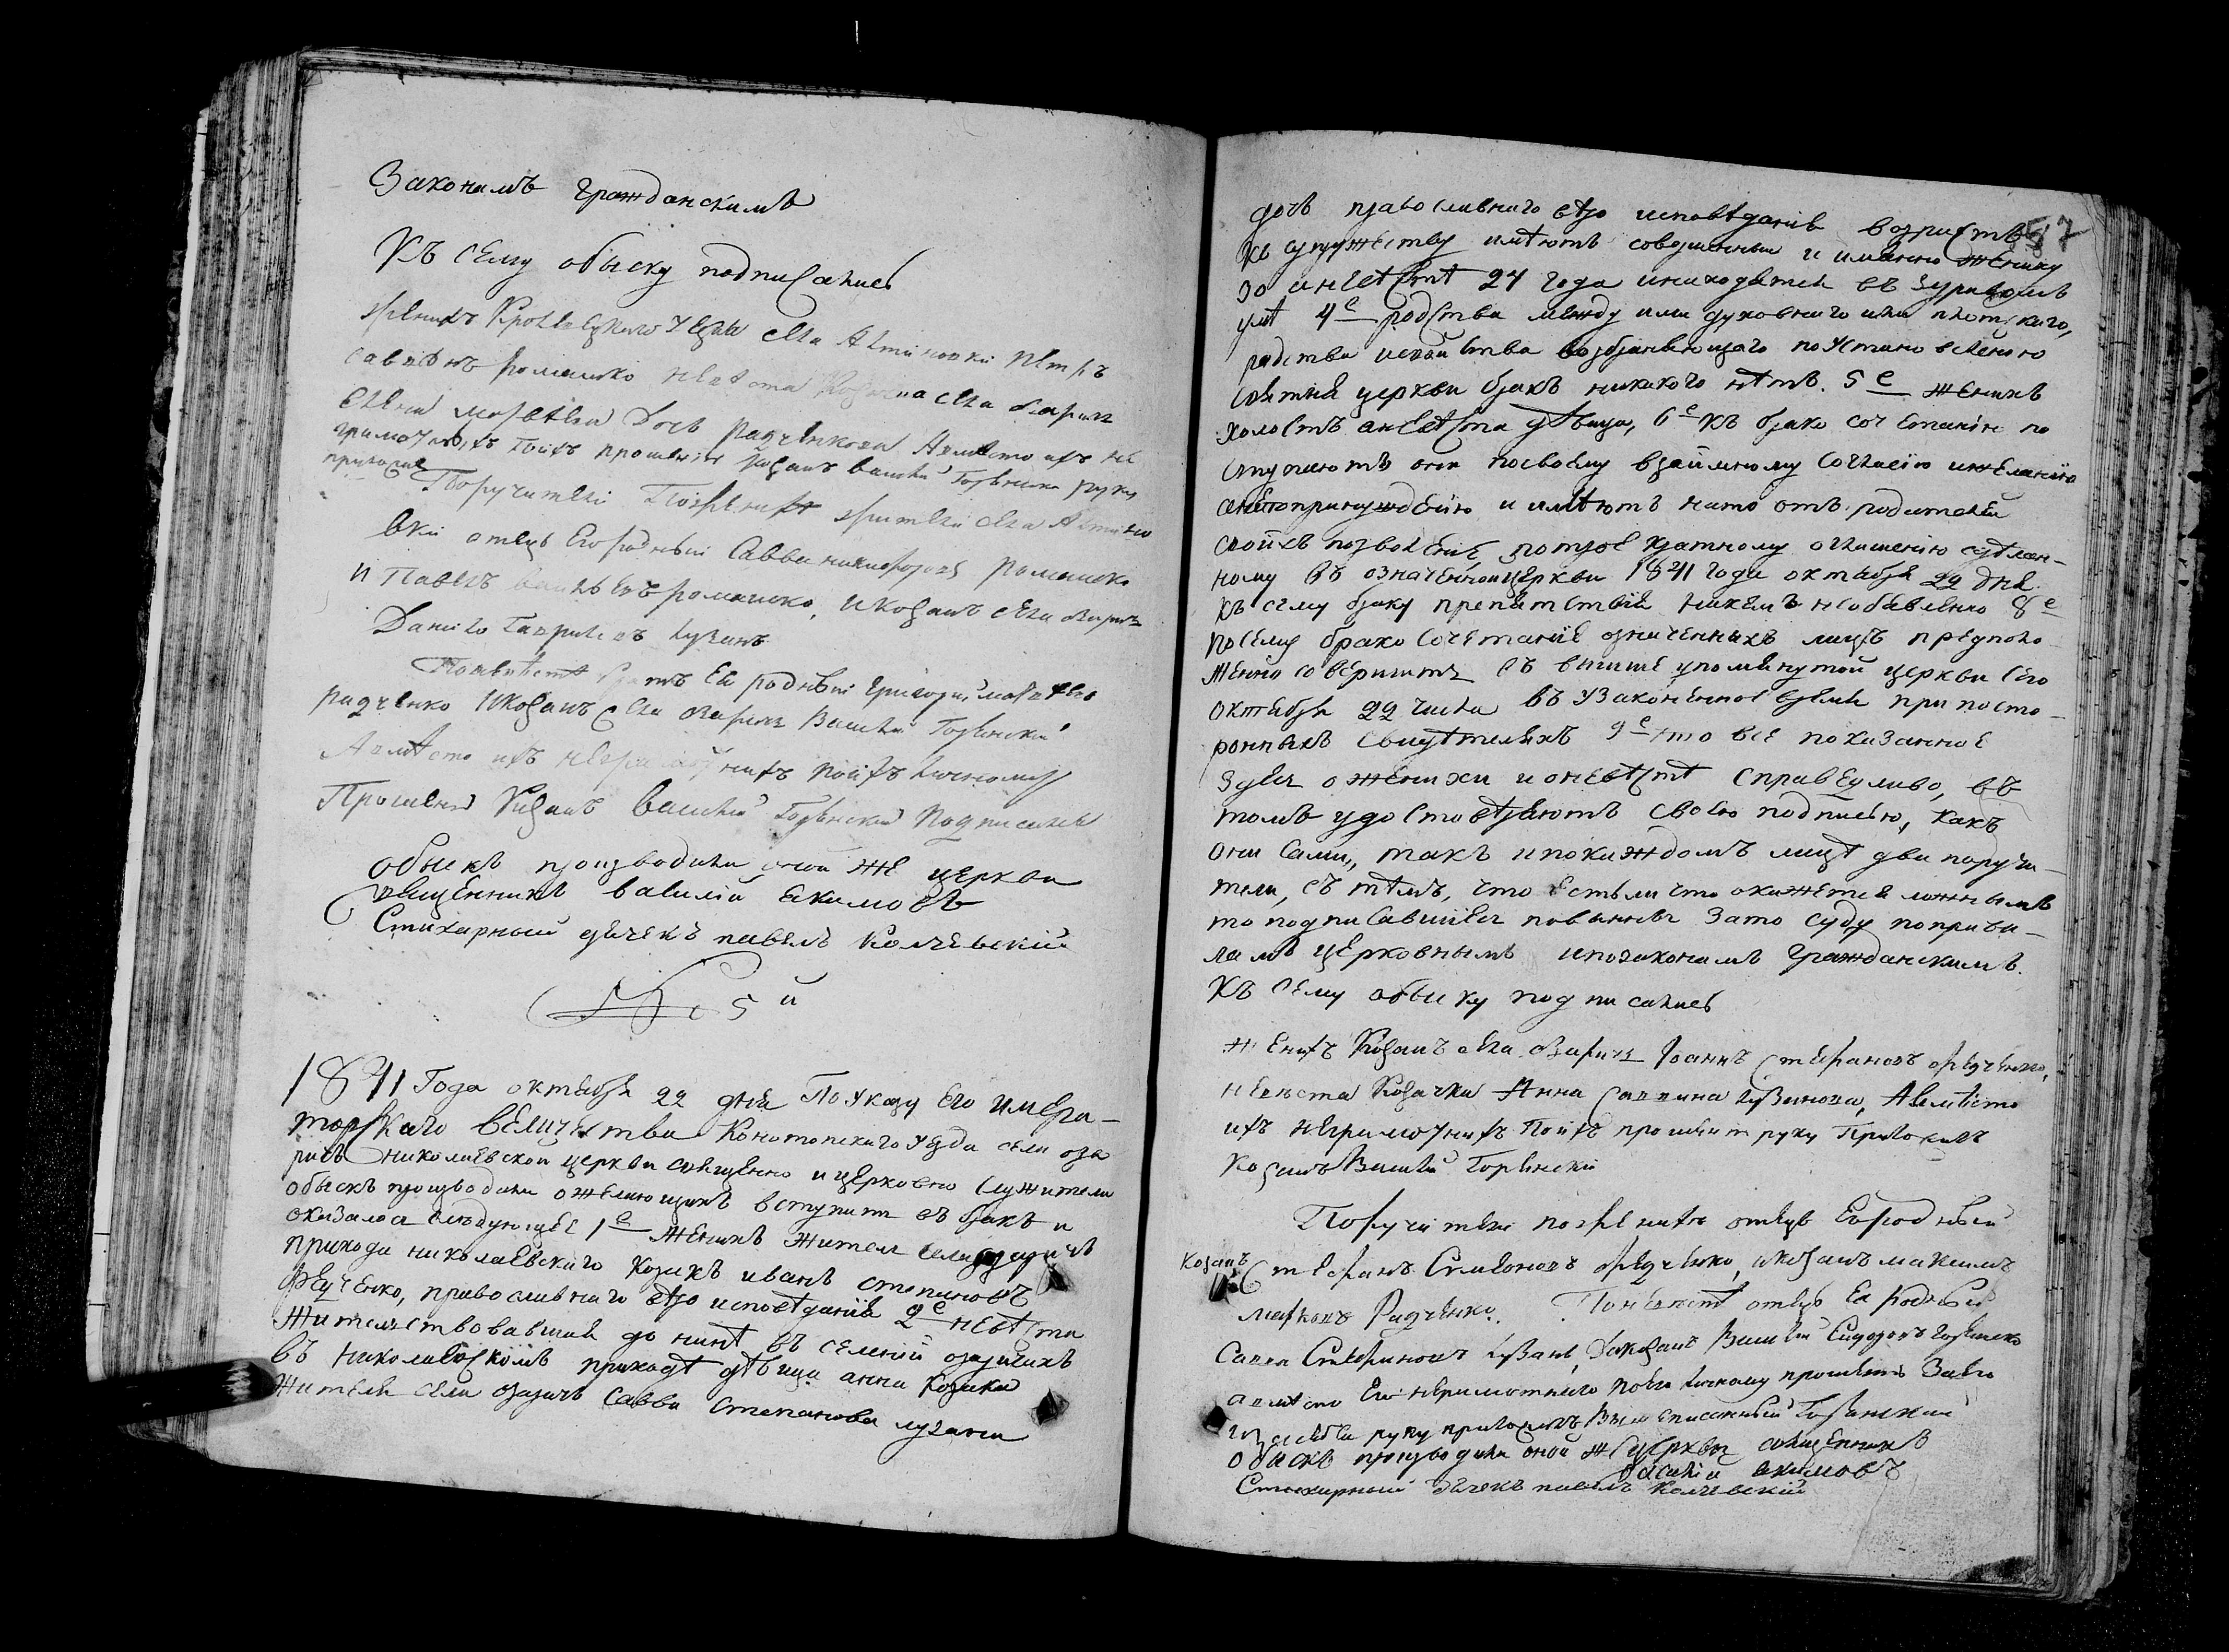 Законамъ гражданскимъ
Къ сему обыску подписались
женихъ Кролевецкаго уезда села Алтиновки Петръ
Саввинъ Ромашко невеста села Озаричъ
Елена Матвеева дочь Радченкова А вместо ихъ не
грамотныхъ по ихъ прошенію козакъ Василий Горенский руку
приложилъ
Поручители По женихе жители села Алтино
вки отецъ его родный Савва Никифоровъ Ромашко
и Павелъ Ромашко, и козакъ села Озаричъ
Данило Гавриловъ Лузанъ
По невесте братъ Ея родный Григорий Матвеевъ
Радченко и козакъ села Озаричъ Василий Горенский
А вместо ихъ неграмотныхъ по ихъ личному
Прошению Козакъ Василий Горенский Подписался
обыскъ производили оной же церкви
Священникъ Василий Екимовъ
Стихарный дьячекъ Павелъ Колчевский
№ 5й
1841 Года октября 22 дня По Указу Его Импера-
торскаго Величества Конотопскаго Уезда села Оза
ричъ Николаевской церкви священно и церковно служители
обыскъ производили о желающихъ вступить въ бракъ и
оказалось следующее 1е женихъ житель села Озаричъ
прихода николаевскаго козакъ иванъ степановъ
Федченко, православнаго веро исповеданія 2е невеста
жительствовавшая до ныне въ селеніи озаричахъ
въ николаевскомъ приходе девица анна козака
жителя села озаричъ Саввы Степанова лузана
57
дочь православнаго веро исповеданія возрастъ
къ супружеству имеютъ совершенный и именно жениху
20 а невесте 21 года и находятся въ здравомъ
уме 4е родства между ими духовнаго или плотскаго,
родства и свойства возбраняющаго по установленію
святыя церкви бракъ никакого нетъ. 5е женихъ
холостъ а невеста девица, 6е къ брако сочетанію по
ступаютъ они по своему взаимному согласію и желанію
а не по принужденію и имеютъ на то отъ родителей
своихъ позволеніе, по трое кратному оглашенію сделан-
ному въ означенной церкви 1841 года октября 22 дня
къ сему браку препятствія никемъ не объявлено 8е
посему брако сочетаніе означенныхъ лицъ предполо
женно совершить въ выше упомянутой церкви сего
октября 22 числа въ узаконенное время при посто-
ронныхъ свидетеляхъ 9е что все показанное
здесь о женихе и о невесте справедливо, въ
томъ удостоверяютъ своею подписью, какъ
они сами, такъ и по каждомъ лице два поручи-
теля, съ темъ, что естьли что окажется ложнымъ
то подписавшіеся повинны за то суду по прави-
ламъ церковнымъ и по законамъ гражданскимъ.
Къ сему обыску подписались
женихъ Козакъ села Озаричъ Іоаннъ Стефановъ Федченко,
невеста Козачка Анна Саввина Лузанова, А вместо
ихъ неграмотныхъ По ихъ прошенію руку Приложилъ
козакъ Василий Горенский
Поручители по женихе отецъ Его родный
козакъ Стефанъ Симеоновъ Федченко, и козакъ Максимъ
Марковъ Радченко. По невесте отецъ Ея Родный
Савва Стефановъ Лузанъ, и козакъ Василий Сидоровъ Горенский
а вместо Его неграмотнаго по его личному прошенію За его
и за себя руку приложилъ Вышеписанный Горенский
обыскъ производили оной же церкви священникъ
Василий Екимовъ
Стихарный дьячекъ Павелъ Колчевский